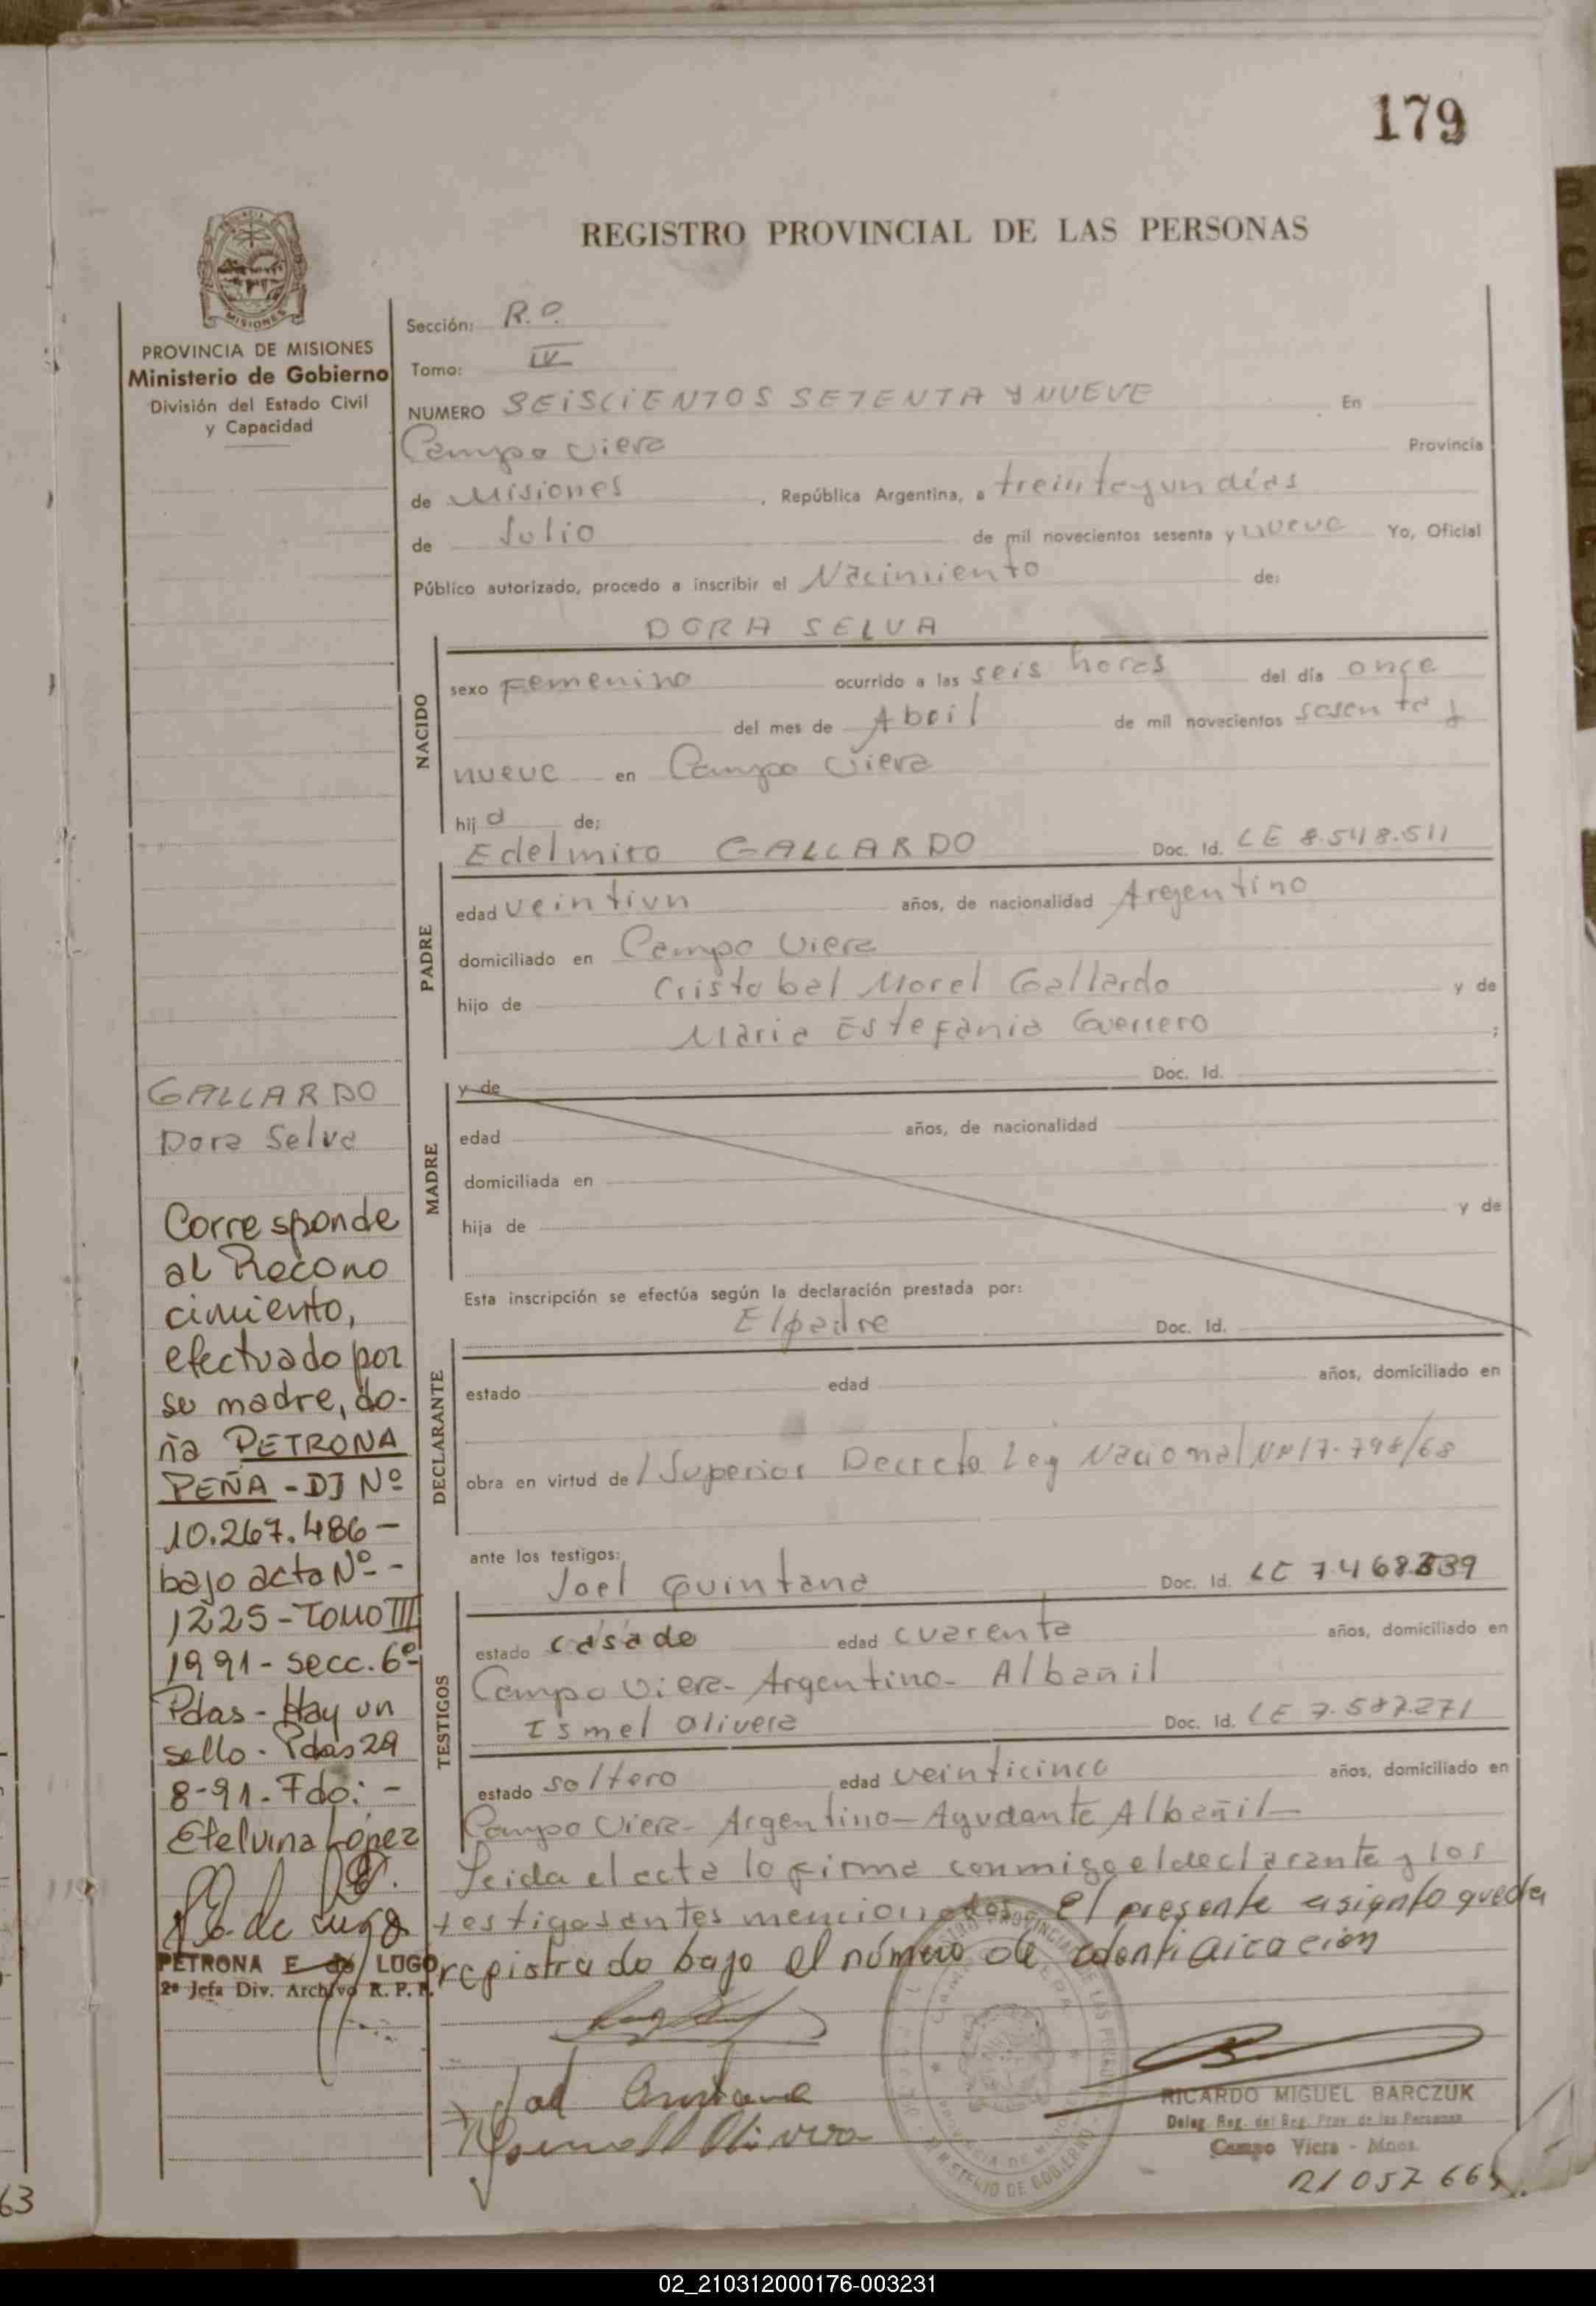 179
REGISTRO PROVINCIAL DE LAS PERSONAS
MISIONES
PROVINCIA DE MISIONES
Ministerio de Gobierno
División del Estado Civil
y Capacidad
Sección: R.P.
Tomo: IV
NUMERO SEISCIENTOS SETENTA Y NUEVE En
Campo Viera Provincia
de Misiones, República Argentina, a treinta y un días
de Julio de mil novecientos sesenta y nueve Yo, Oficial
Público autorizado, procedo a inscribir el Nacimiento de:
NACIDO
DORA SELVA
sexo Femenino ocurrido a las seis horas del día once
del mes de Abril de mil novecientos sesenta y
nueve en Campo Viera
hija de:
PADRE
Edelmiro GALLARDO Doc. Id. LE 8.548.511
edad veintiun años, de nacionalidad Argentino
domiciliado en Campo Viera
hijo de Cristobal Morel Gallardo y de
Maria Estefania Guerrero ;
MADRE
y de Doc. Id.
edad años, de nacionalidad
domiciliada en
hija de y de
Esta inscripción se efectúa según la declaración prestada por:
DECLARANTE
El padre Doc. Id.
estado edad años, domiciliado en
obra en virtud de / Superior Decreto Ley Nacional Nº 17.798/68
ante los testigos:
TESTIGOS
Joel Quintana Doc. Id. LE 7.468.339
estado casado edad cuarenta años, domiciliado en
Campo Viera- Argentino- Albañil
Ismel Olivera Doc. Id. LE 7.587.271
estado soltero edad veinticinco años, domiciliado en
Campo Viera- Argentino- Ayudante Albañil-
Leida el acta lo firma conmigo el declarante y los
testigos antes mencionados. El presente asiento queda
registrado bajo el número de
GALLARDO
Dora Selva
Corresponde
al Recono
cimiento,
efectuado por
su madre, do-
ña PETRONA
PEÑA - DJ Nº
10.267.486-
bajo acta Nº -
1225-TOMO III
1991- secc. 6º
Pdas - Hay un
sello - Pdas 29
8-91- Fdo: -
Etelvina López
P. E. de Lugo
PETRONA E. de LUGO
2ª Jefa Div. Archivo R. P. P.
Joel Quintana
Ismel Olivera
MINISTERIO DE GOBIERNO
RICARDO MIGUEL BARCZUK
Deleg. Reg. del Reg. Prov. de las Personas
Campo Viera - Mnes.
63
02_210312000176-003231